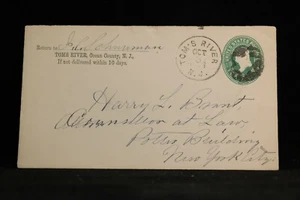 Return to
TOM'S RIVER, Ocean County, N. J.,
If not delivered within 10 days.
TOM'S RIVER
OCT
N. J.
Harry L. Brant
Counselor at Law,
Potter Building
New York City.